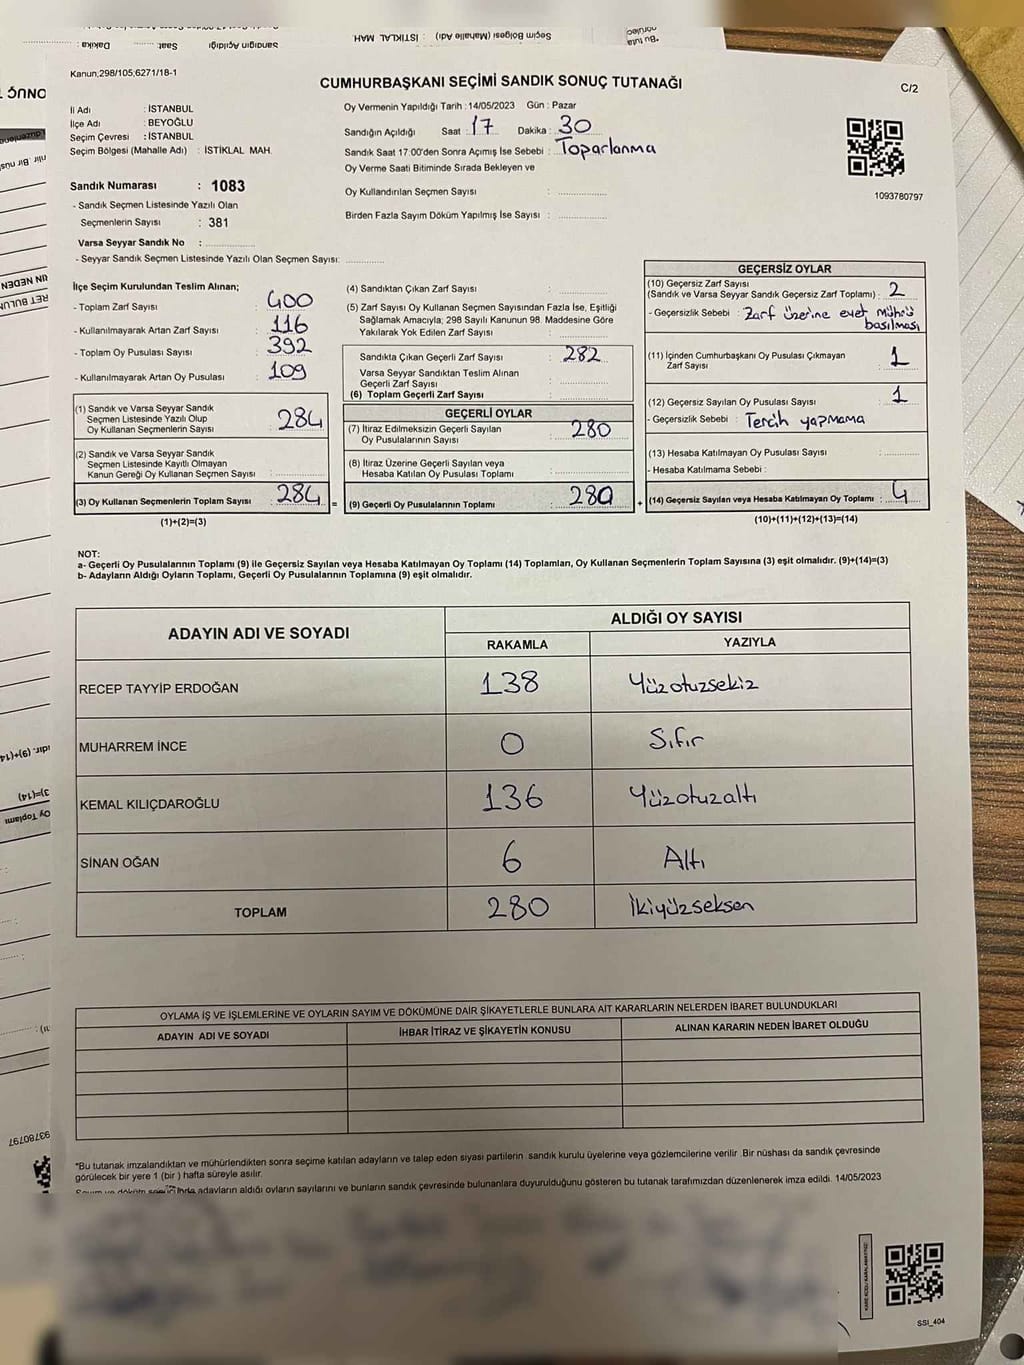 Kanun,298/105;6271/18-1
CUMHURBAŞKANI SEÇİMİ SANDIK SONUÇ TUTANAĞI
C/2
İl Adı : İSTANBUL
İlçe Adı : BEYOĞLU
Seçim Çevresi : İSTANBUL
Seçim Bölgesi (Mahalle Adı) : İSTİKLAL MAH.
Oy Vermenin Yapıldığı Tarih : 14/05/2023 Gün : Pazar
Sandığın Açıldığı Saat : 17 Dakika : 30
Sandık Saat 17:00'den Sonra Açımış İse Sebebi : Toparlanma
Oy Verme Saati Bitiminde Sırada Bekleyen ve
Oy Kullandırılan Seçmen Sayısı :
Birden Fazla Sayım Döküm Yapılmış İse Sayısı :
1093780797
Sandık Numarası : 1083
- Sandık Seçmen Listesinde Yazılı Olan
Seçmenlerin Sayısı : 381
Varsa Seyyar Sandık No :
- Seyyar Sandık Seçmen Listesinde Yazılı Olan Seçmen Sayısı:
İlçe Seçim Kurulundan Teslim Alınan;
- Toplam Zarf Sayısı : 400
- Kullanılmayarak Artan Zarf Sayısı : 116
- Toplam Oy Pusulası Sayısı : 392
- Kullanılmayarak Artan Oy Pusulası : 109
(1) Sandık ve Varsa Seyyar Sandık
Seçmen Listesinde Yazılı Olup
Oy Kullanan Seçmenlerin Sayısı : 284
(2) Sandık ve Varsa Seyyar Sandık
Seçmen Listesinde Kayıtlı Olmayan
Kanun Gereği Oy Kullanan Seçmen Sayısı :
(3) Oy Kullanan Seçmenlerin Toplam Sayısı : 284 =
(1)+(2)=(3)
(4) Sandıktan Çıkan Zarf Sayısı :
(5) Zarf Sayısı Oy Kullanan Seçmen Sayısından Fazla İse, Eşitliği
Sağlamak Amacıyla; 298 Sayılı Kanunun 98. Maddesine Göre
Yakılarak Yok Edilen Zarf Sayısı :
Sandıkta Çıkan Geçerli Zarf Sayısı : 282
Varsa Seyyar Sandıktan Teslim Alınan
Geçerli Zarf Sayısı :
(6) Toplam Geçerli Zarf Sayısı :
GEÇERLİ OYLAR
(7) İtiraz Edilmeksizin Geçerli Sayılan
Oy Pusulalarının Sayısı : 280
(8) İtiraz Üzerine Geçerli Sayılan veya
Hesaba Katılan Oy Pusulası Toplamı :
(9) Geçerli Oy Pusulalarının Toplamı : 280 +
GEÇERSİZ OYLAR
(10) Geçersiz Zarf Sayısı
(Sandık ve Varsa Seyyar Sandık Geçersiz Zarf Toplamı) : 2
- Geçersizlik Sebebi : Zarf üzerine evet mührü
basılması
(11) İçinden Cumhurbaşkanı Oy Pusulası Çıkmayan
Zarf Sayısı : 1
(12) Geçersiz Sayılan Oy Pusulası Sayısı : 1
- Geçersizlik Sebebi : Tercih yapmama
(13) Hesaba Katılmayan Oy Pusulası Sayısı :
- Hesaba Katılmama Sebebi :
(14) Geçersiz Sayılan veya Hesaba Katılmayan Oy Toplamı : 4
(10)+(11)+(12)+(13)=(14)
NOT:
a- Geçerli Oy Pusulalarının Toplamı (9) ile Geçersiz Sayılan veya Hesaba Katılmayan Oy Toplamı (14) Toplamları, Oy Kullanan Seçmenlerin Toplam Sayısına (3) eşit olmalıdır. (9)+(14)=(3)
b- Adayların Aldığı Oyların Toplamı, Geçerli Oy Pusulalarının Toplamına (9) eşit olmalıdır.
ADAYIN ADI VE SOYADI
ALDIĞI OY SAYISI
RAKAMLA YAZIYLA
RECEP TAYYİP ERDOĞAN 138 Yüzotuzsekiz
MUHARREM İNCE 0 Sıfır
KEMAL KILIÇDAROĞLU 136 Yüzotuzaltı
SİNAN OĞAN 6 Altı
TOPLAM 280 İkiyüzseksen
OYLAMA İŞ VE İŞLEMLERİNE VE OYLARIN SAYIM VE DÖKÜMÜNE DAİR ŞİKAYETLERLE BUNLARA AİT KARARLARIN NELERDEN İBARET BULUNDUKLARI
ADAYIN ADI VE SOYADI İHBAR İTİRAZ VE ŞİKAYETİN KONUSU ALINAN KARARIN NEDEN İBARET OLDUĞU
*Bu tutanak imzalandıktan ve mühürlendikten sonra seçime katılan adayların ve talep eden siyasi partilerin sandık kurulu üyelerine veya gözlemcilerine verilir .Bir nüshası da sandık çevresinde
görülecek bir yere 1 (bir ) hafta süreyle asılır.
adayların aldığı oyların sayılarını ve bunların sandık çevresinde bulunanlara duyurulduğunu gösteren bu tutanak tarafımızdan düzenlenerek imza edildi. 14/05/2023
SSI_404